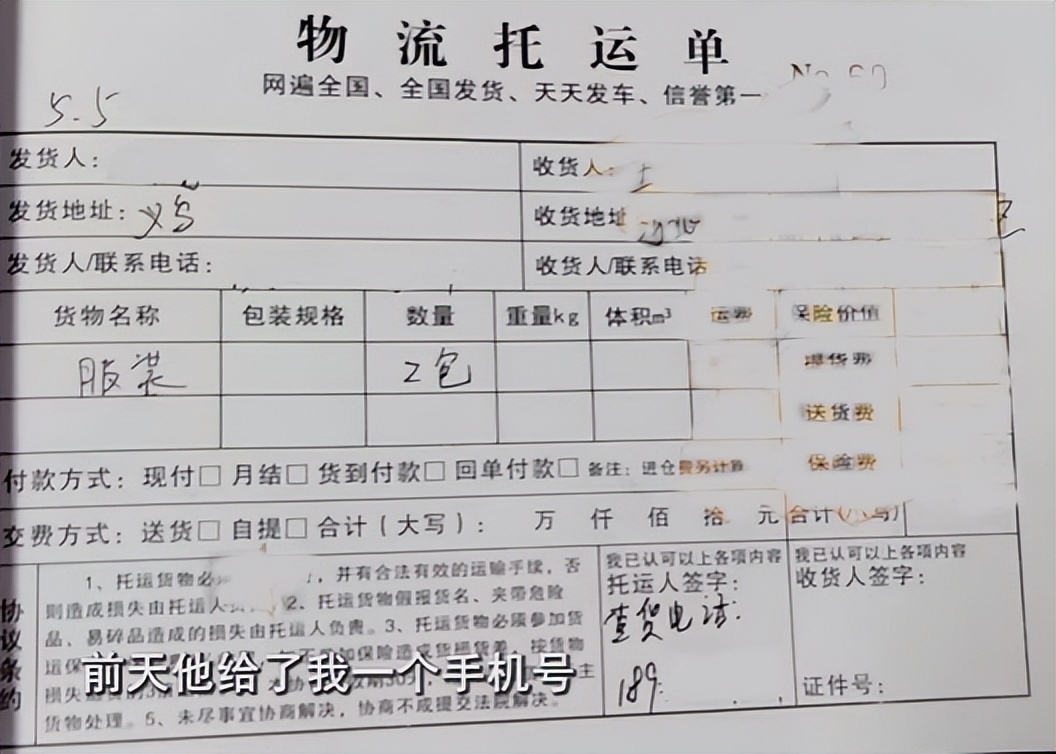 物流托运单
网遍全国、全国发货、天天发车、信誉第一
5.5
发货人： 收货人：
发货地址：义乌 收货地址
发货人/联系电话： 收货人/联系电话
货物名称 包装规格 数量 重量kg 体积m³ 运费 保险价值
服装 2包 提货费
送货费
付款方式：现付□ 月结□ 货到付款□ 回单付款□ 备注：进仓费另计算 保险费
交费方式：送货□ 自提□ 合计（大写）： 万 仟 佰 拾 元 合计（小写）
协议条约
1、托运货物必 ，并有合法有效的运输手续，否
则造成损失由托运人 2、托运货物假报货名、夹带危险
品、易碎品造成的损失由托运人负责。3、托运货物必须参加货
运保 加保险造成货损货差，按货物
损失 主
货物处理。5、未尽事宜协商解决，协商不成提交法院解决。
我已认可以上各项内容
托运人签字：
查货电话：
189
我已认可以上各项内容
收货人签字：
证件号：
前天他给了我一个手机号